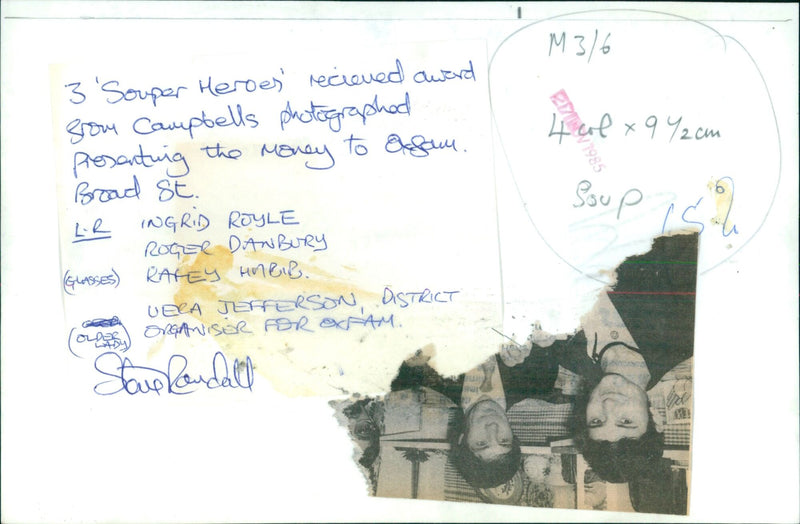 3 'Souper Heroes' recieved award
from Campbells photographed
presenting the money to Oxfam.
Broad St.
L-R INGRID ROYLE
ROGER DANBURY
(GLASSES) RAFEY HABIB.
VERA JEFFERSON, DISTRICT
(OLDER LADY) ORGANISER FOR OXFAM.
Steve Randall
M 3/6
4 col x 9 1/2 cm
1985
Soup